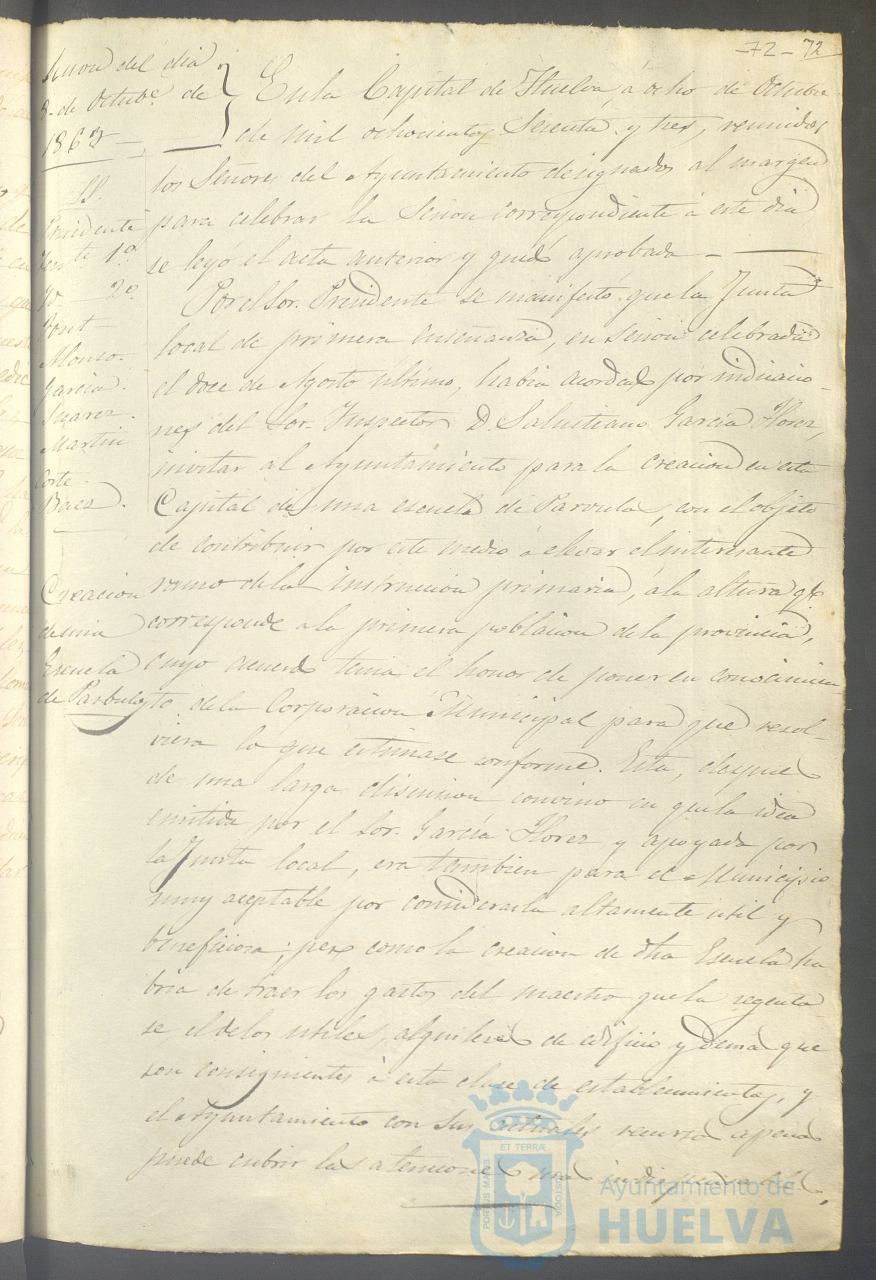 -72- 72
Sesion del dia
8 de Octubre de
1863
SS.
Presidente
Tente 1º
Yo 2º
Pont
Alonso
Garcia
Suarez
Martin
Corte
Baez
Creacion
de una
Escuela
de Parbulos
En la Capital de Huelva, á ocho de Octubre
de mil ochocientos Sesenta y tres, reunidos
los Señores del Ayuntamiento designados al margen
para celebrar la Sesion correspondiente á este dia
se leyó el acta anterior y quedó aprobada
Por el Sor. Presidente se manifestó que la Junta
local de primera enseñanza, en sesion celebrada
el doce de Agosto último, habia acordado por indicacio-
nes del Sor. Inspector D. Salustiano Garcia Florez,
invitar al Ayuntamiento para la creacion en esta
Capital de una escuela de Parvulos, con el objeto
de contribuir por este medio á elevar el interesante
ramo de la instruccion primaria, á la altura qe
corresponde a la primera poblacion de la provincia,
cuyo acuerdo tenia el honor de poner en conocimien
to de la Corporacion Municipal para que resol-
viera lo que estimase conforme. Esta, despues
de una larga discusion convino en que la idea
emitida por el Sor. Garcia Florez y apoyada por
la Junta local, era tambien para el Municipio
muy aceptable por considerarla altamente util y
beneficiosa; pero como la creacion de dha Escuela ha
bria de traer los gastos del maestro que la regenta
se, el de los utiles, alquileres de edificio y demas que
son consiguientes á esta clase de establecimientos, y
el Ayuntamiento con sus actuales recursos apenas
puede cubrir las atenciones mas
PORTUS MARIS ET TERRÆ CUSTODIA
Ayuntamiento de
HUELVA